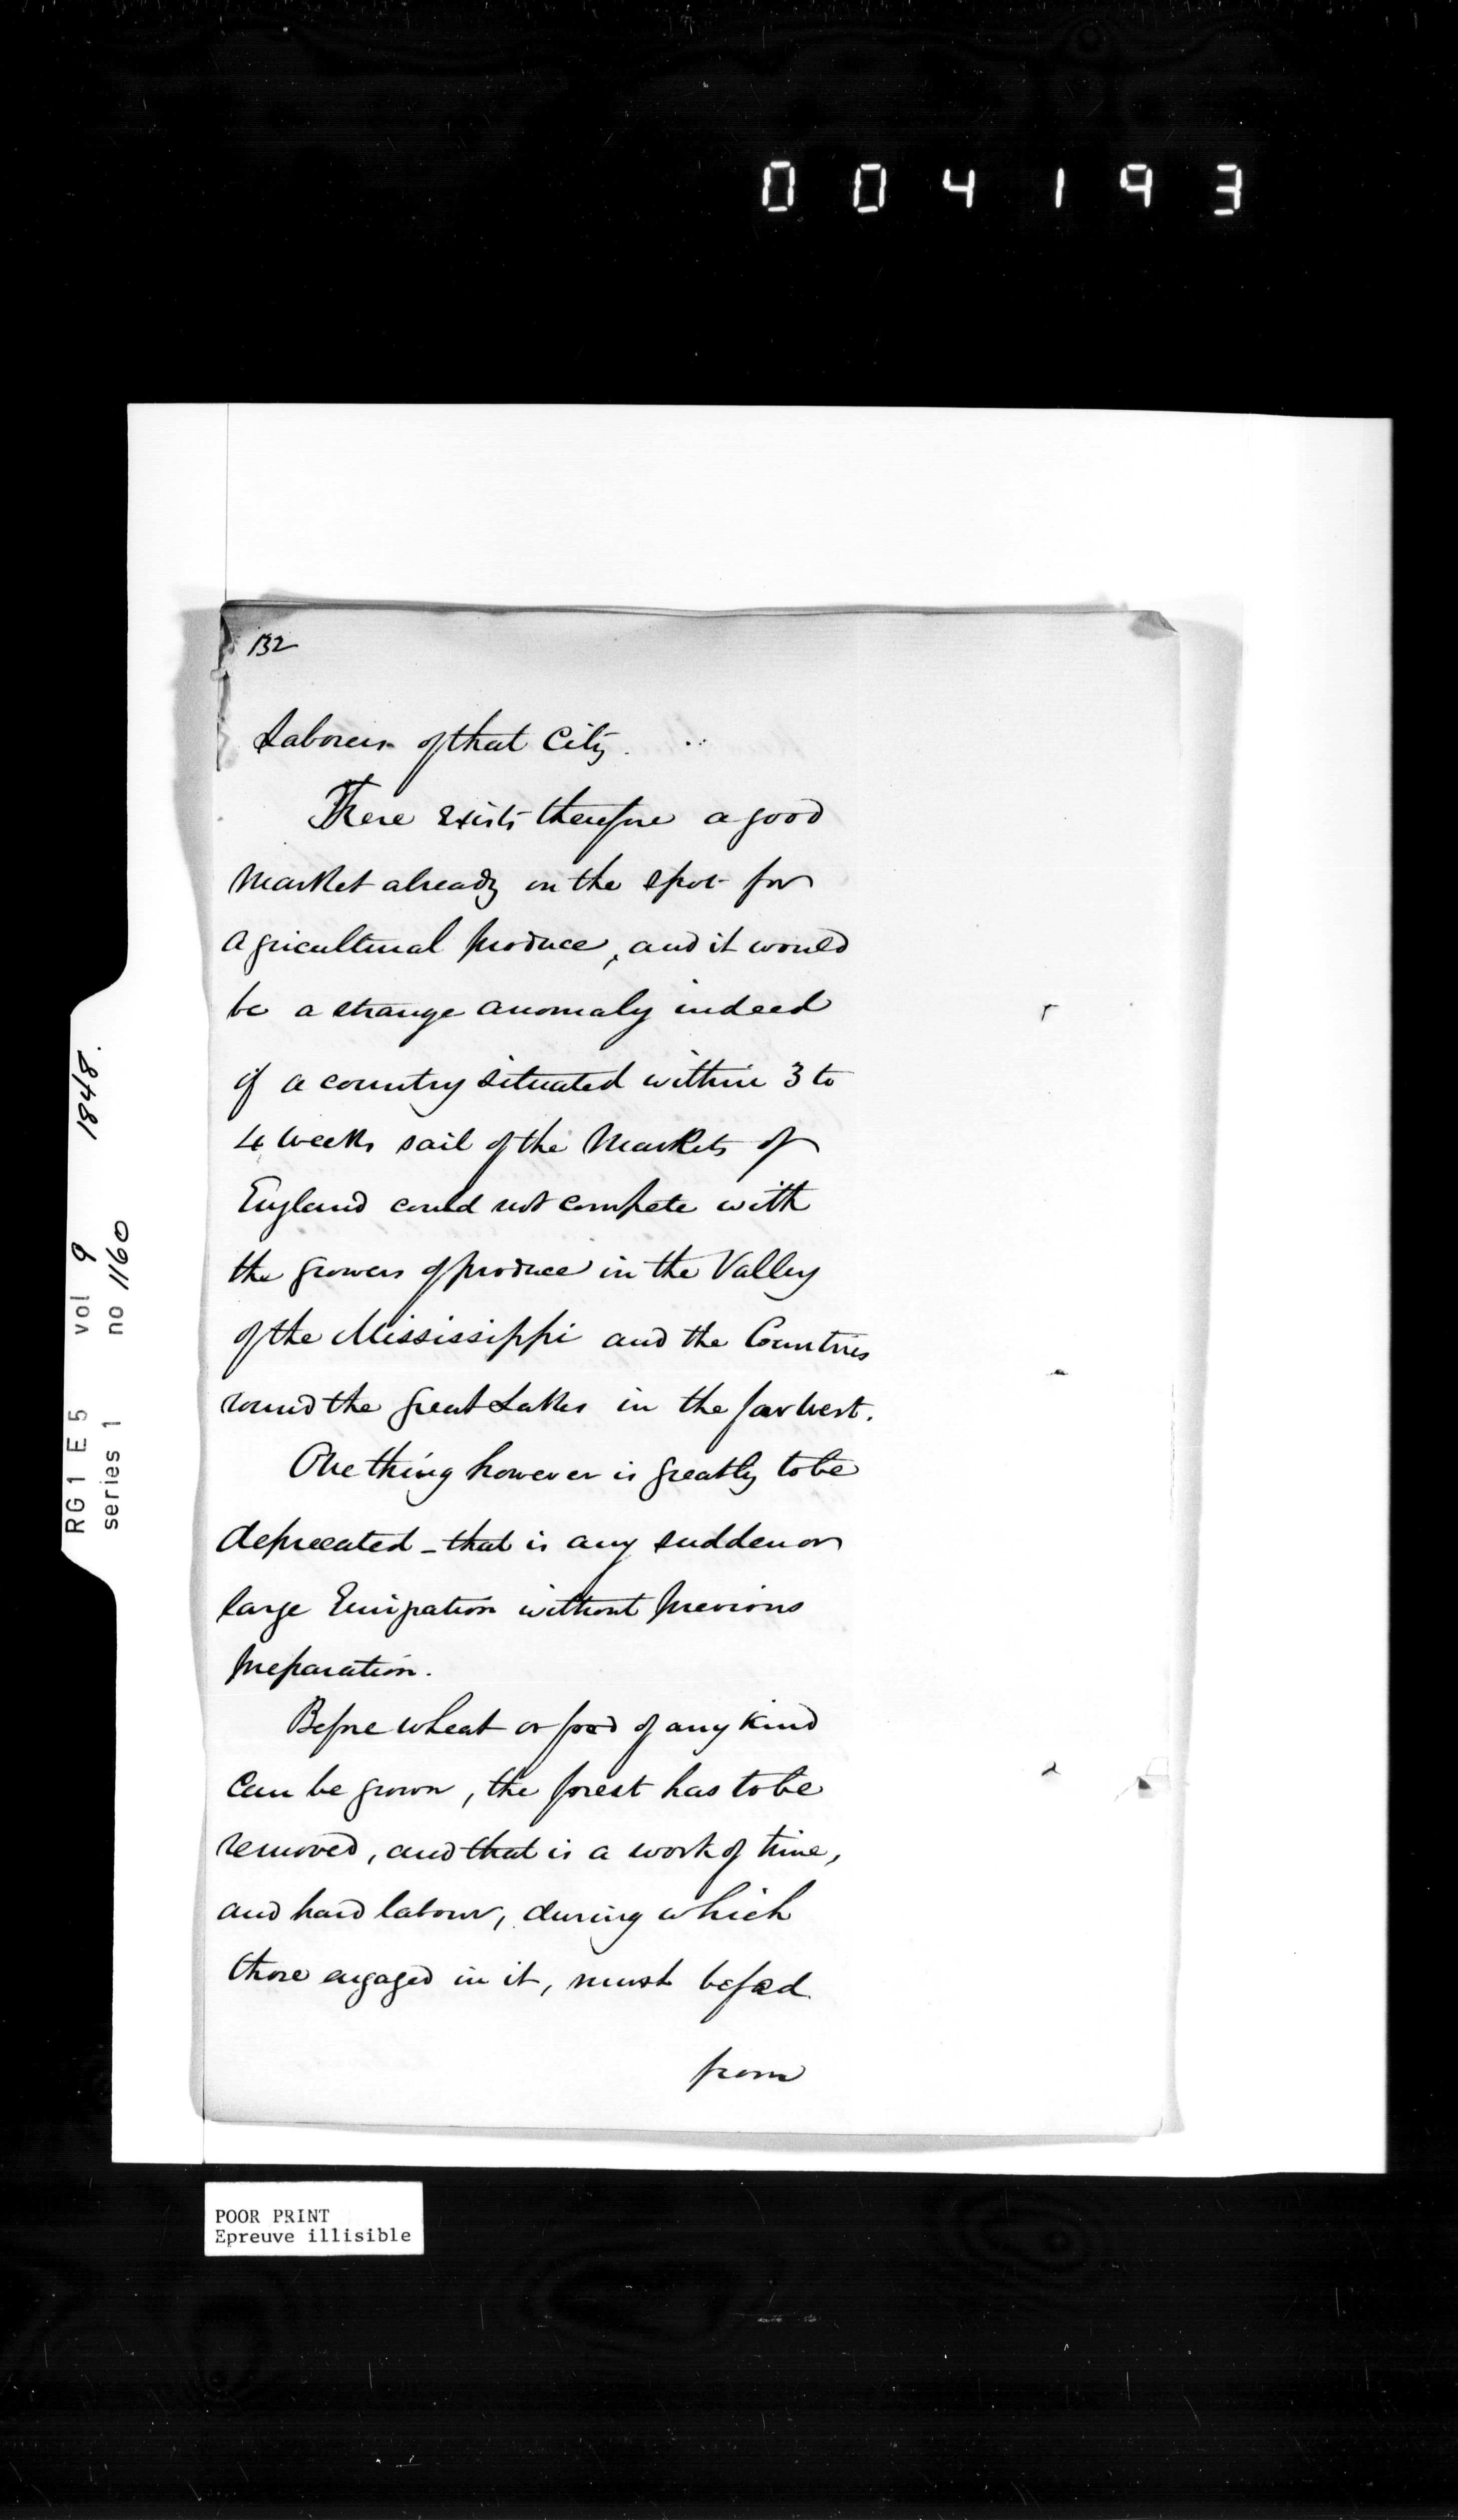 004193
132
Laborers of that City.
There exists therefore a good
Market already on the spot for
Agricultural produce, and it would
be a strange anomaly indeed
if a country situated within 3 to
4 Weeks sail of the Markets of
England could not compete with
the growers of produce in the Valley
of the Mississippi and the Countries
round the great Lakes in the far West.
One thing however is greatly to be
deprecated - that is any sudden or
large Emigration without previous
preparation.
Before wheat or food of any kind
can be grown, the forest has to be
removed, and that is a work of time,
and hard labour, during which
those engaged in it, must be fed
from
RG1 E5 vol 9 1848.
series 1 no 1160
POOR PRINT
Epreuve illisible